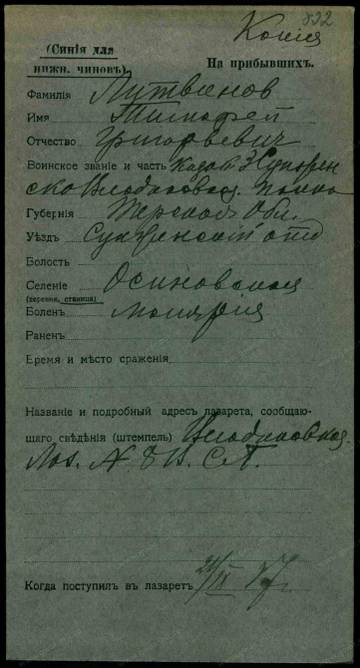 332
Копия
(Синія для
нижн. чиновъ).
На прибывшихъ.
Фамилія Литвинов
Имя Тимофей
Отчество Григорьевич
Воинское званіе и часть Казак 3
ско Владикавказ. полка
Губернія Терской Обл.
Уѣздъ Сунженский отд
Волость
Селеніе
(деревня, станица)
Боленъ малярия
Раненъ
Время и мѣсто сраженія
Названіе и подробный адресъ лазарета, сообщаю-
щаго свѣдѣнія (штемпель) Владикавказ.
Лаз. № 8
Когда поступилъ въ лазаретъ 21/IX 17